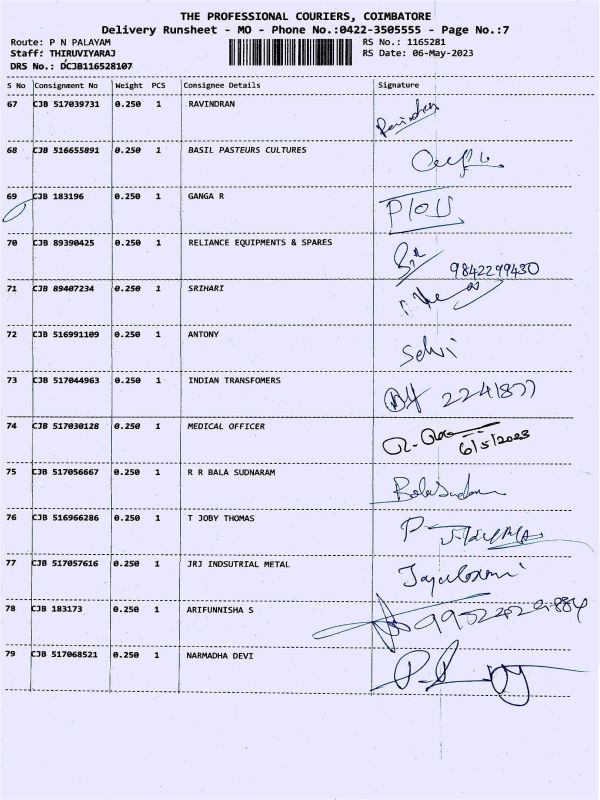 THE PROFESSIONAL COURIERS, COIMBATORE
Delivery Runsheet - MO - Phone No.:0422-3505555 - Page No.:7
Route: P N PALAYAM RS No.: 1165281
Staff: THIRUVIYARAJ RS Date: 06-May-2023
DRS No.: DCJB116528107
S No Consignment No Weight PCS Consignee Details Signature
67 CJB 517039731 0.250 1 RAVINDRAN Ravindran
68 CJB 516655891 0.250 1 BASIL PASTEURS CULTURES
69 CJB 183196 0.250 1 GANGA R
70 CJB 89390425 0.250 1 RELIANCE EQUIPMENTS & SPARES
9842299430
71 CJB 89407234 0.250 1 SRIHARI
72 CJB 516991109 0.250 1 ANTONY Selvi
73 CJB 517044963 0.250 1 INDIAN TRANSFOMERS 2241877
74 CJB 517030128 0.250 1 MEDICAL OFFICER
6/5/2023
75 CJB 517056667 0.250 1 R R BALA SUDNARAM
76 CJB 516966286 0.250 1 T JOBY THOMAS
77 CJB 517057616 0.250 1 JRJ INDSUTRIAL METAL
78 CJB 183173 0.250 1 ARIFUNNISHA S
79 CJB 517068521 0.250 1 NARMADHA DEVI